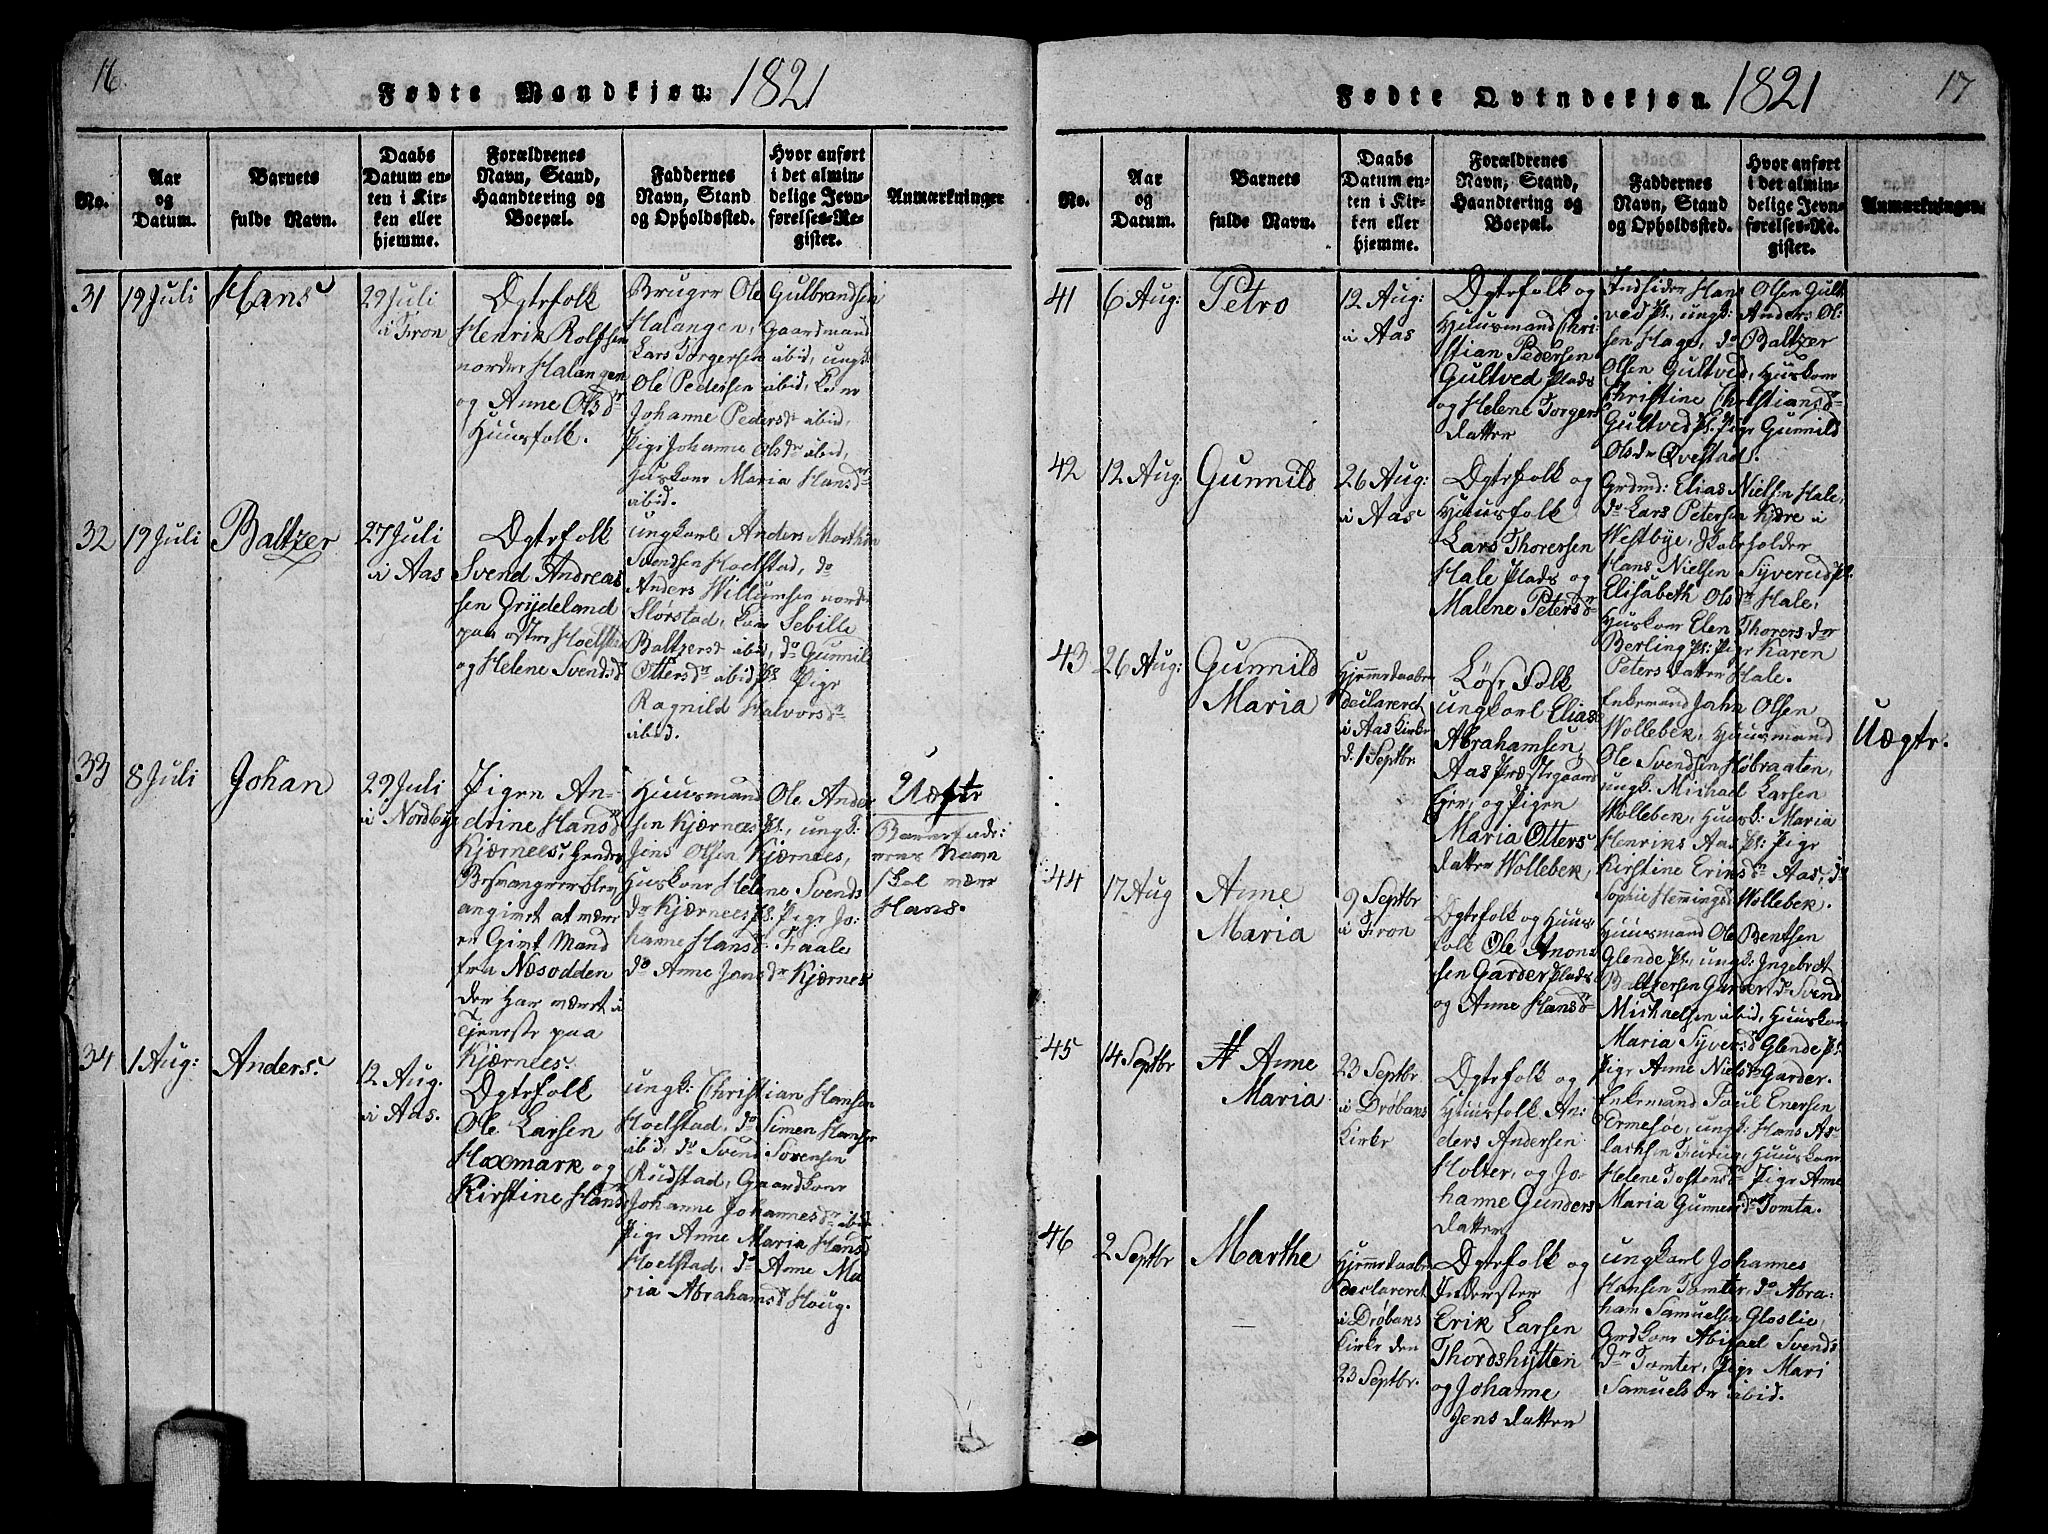 16.
Fødte Mandkjøn: 1821
No.
Aar
og
Datum.
Barnets
fulde Navn.
Daabs
Datum en-
ten i Kir-
ken eller
hjemme.
Forældrenes
Navn, Stand,
Haandtering og
Boepæl.
Faddernes
Navn, Stand
og Opholdssted.
Hvor anført
i det almin-
delige Jevn-
førelses-Re-
gister.
Anmærkninger
31
19 Juli
Hans
29 Juli
i Fron
Ægtefolk
Henrik Rolfsen
nordre Halangen
og Anne Olsdr
Huusfolk.
Bruger Ole Gulbrandsen
Halangen, Gaardmand
Lars Torgersen ibid, ungk:
Ole Pedersen ibid, Kone
Johanne Pedersdr ibid,
Pige Johanne Olsdr ibid,
Huskone Maria Hansdr
ibid.
32
19 Juli
Baltzer
27 Juli
i Aas
Ægtefolk
Svend Andreas
sen Frydeland
paa østre Hoelstad
og Helene Svendsdr
ungkarl Anders Morthen
Svendsen Hoelstad, do
Anders Willumsen nordre
Slørstad, Kone Sebille
Baltzersdr ibid, do Gunnild
Ottersdr ibid Pl. Pige
Ragnild Halvorsdr
ibid.
33
8 Juli
Johan
29 Juli
i Nordbye
Pigen An-
drine Hansdr
Kjærnees, hendes
Besvangrer blev
angivet at være
en Givt Mand
fra Næsodden
der har været i
Tjeneste paa
Kjærnees.
Huusmand Ole Ander
sen Kjærnees Pl., ungk:
Jens Olsen Kjærnees,
Huskone Helene Svends
dr Kjærnees Pl. Pige Jo:
hanne Hansdr Faale
do Anne Jensdr Kjærnes
Uægte
Barnefade:
rens Navn
skal være
Hans.
34
1 Aug:
Anders.
12 Aug.
i Aas.
Ægtefolk
Ole Larsen
Hoxmark og
Kirstine Hansdr
ungk: Christian Hansen
Hoelstad, do Simen Hansen
ibid, do Svend Sørensen
Rudstad, Gaardkone
Johanne Johannesdr ibid
Pige Anne Maria Hansdr
Hoelstad, do Anne Ma
ria Abrahamsdr Houg.
17
Fødte Qvindekjøn. 1821
No.
Aar
og
Datum.
Barnets
fulde Navn.
Daabs
Datum en-
ten i Kir-
ken eller
hjemme.
Forældrenes
Navn, Stand,
Haandtering og
Boepæl.
Faddernes
Navn, Stand
og Opholdssted.
Hvor anført
i det almin-
delige Jevn-
førelses-Re-
gister.
Anmærkninger.
41
6 Aug:
Petro
12 Aug:
i Aas
Ægtefolk og
Huusmand Chri:
stian Pedersen
Gultved Plads
og Helene Torgers
datter
Indsidder Hans Olsen Gult
ved Pl., ungk: Anders Ol:
sen Hage, do Baltzer
Olsen Gultved, Huskone
Christine Christiansdr
Gultved Pl. Pige Gunnild
Olsdr Qvestad.
42
12 Aug:
Gunnild
26 Aug:
i Aas
Ægtefolk og
Huusfolk
Lars Thoresen
Hale Plads og
Malene Petersdr
Grdmd: Elias Nielsen Hale,
do Lars Petersen Kjære i
Westbye, Skoleholder
Hans Nielsen Syverud Pl.
Elisabeth Olsdr Hale,
Huskone Elen Thorersdr
Berling Pl: Pige Karen
Peters datter Hale.
43
26 Aug:
Gunnild
Maria
hjemmedaabn
declareret
i Aas Kirke
d. 1 Septbr
Løse Folk
ungkarl Elias
Abrahamsen
Aas Præstegaard
Eje, og Pigen
Maria Otters
datter Wollebek
Enkemand John Olsen
Wollebek, Huusmand
Ole Svendsen Høbraaten,
ungk: Michael Larsen
Wollebek, Huusk: Maria
Henriks Aas Pl: Pige
Kirstine Eriksdr Aas, do
Sophie Hemmingsdr Wollebek.
Uægte.
44
17 Aug
Anne
Maria
9 Septbr
i Fron
Ægtefolk og Huus
folk Ole Anon:
sen Garder Plads
og Anne Hansdr
Huusmand Ole Bentsen
Glende Pl., ungk: Ingebret
Baltzersen Garder, do Svend
Michaelsen ibid, Huuskone
Maria Syversdr Glende Pl.
Pige Anne Nielsdr Garder.
45
14 Septbr
# Anne
Maria
23 Septbr
i Drøbaks
Kirke
Ægtefolk og
Huusfolk An:
ders Andersen
Holter, og Jo:
hanne Gunders
datter
Enkemand Poul Enersen
Ermesøe, ungk: Hans As-
laksen Furug, Huuskone
Helene Tostensdr Pige Anne
Maria Gunnersdr Tomta.
46
2 Septbr
Marthe
hjemmedaabn
declareret
i Drøbaks
Kirke den
23 Septbr.
Ægtefolk og
Inderster
Erik Larsen
Thordshytten
og Johanne
Jens datter
ungkarl Johannes
Hansen Tomter, do Abra:
ham Samuelsen Gloslie,
Grdkone Abigael Svends
dr Tomter, Pige Mari
Samuelsdr ibid.